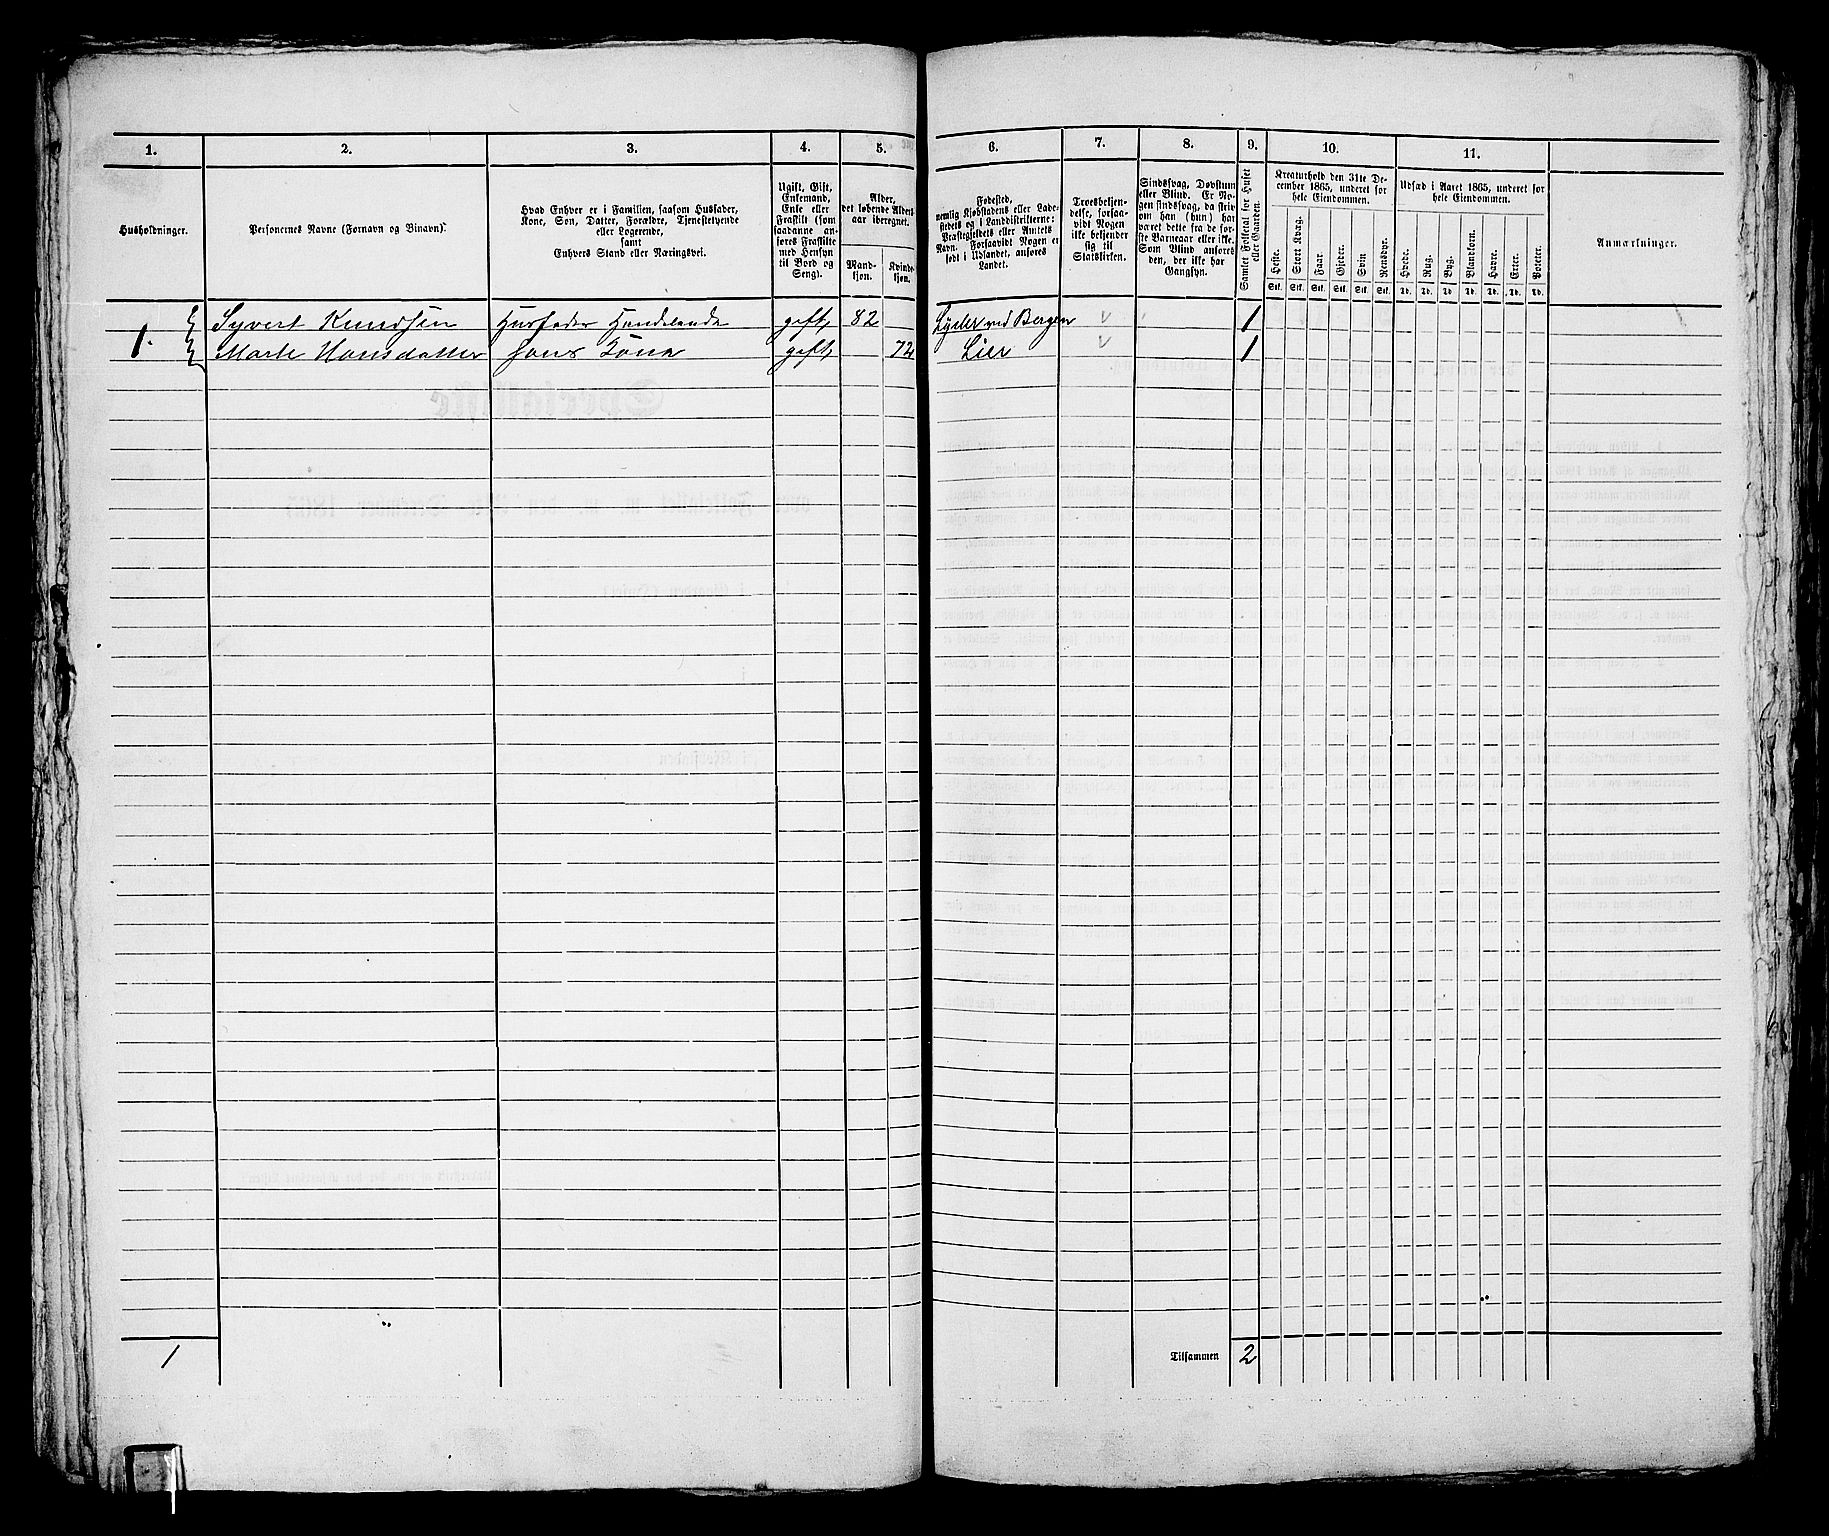 1. 2. 3. 4. 5. 6. 7. 8. 9. 10. 11.
Husholdninger.
Personernes Navne (Fornavn og Binavn).
Hvad Enhver er i Familien, saasom Husfader,
Kone, Søn, Datter, Forældre, Tjenestetyende
eller Logerende,
samt
Enhvers Stand eller Næringsvei.
Ugift, Gift,
Enkemand,
Enke eller
Fraskilt (som
saadanne an-
føres Fraskilte
med Hensyn
til Bord og
Seng).
Alder,
det løbende Alders-
aar iberegnet.
Mand-
kjøn.
Kvinde-
kjøn.
Fødested,
nemlig Kjøbstadens eller Lade-
stedets og i Landdistrikterne:
Præstegjeldets eller Amtets
Navn. Forsaavidt Nogen er
født i Udlandet, anføres
Landet.
Troesbekjen-
delse, forsaa-
vidt Nogen
ikke bekjender
sig til
Statskirken.
Sindssvag, Døvstum
eller Blind. Er No-
gen sindssvag, da skriv
om han (hun) har
været dette fra de før-
ste Barneaar eller ikke.
Som Blind anføres
den, der ikke har
Gangsyn.
Samlet Folketal for Huset
eller Gaarden.
Kreaturhold den 31te De-
cember 1865, underet for
hele Eiendommen.
Heste. Stort Kvæg. Faar. Gjeder. Svin Rensdyr.
Stk. Stk. Stk. Stk. Stk. Stk.
Udsæd i Aaret 1865, underet for
hele Eiendommen.
Hvede. Rug. Byg. Blandkorn. Havre. Erter. Poteter.
Td. Td. Td. Td. Td. Td. Td.
Anmærkninger.
Syvert Knudsen Husfader Handelende gift 82 ved Bergen 1
1. Marte Hansdatter hans Kone gift 72 Lier 1
1 Tilsammen 2